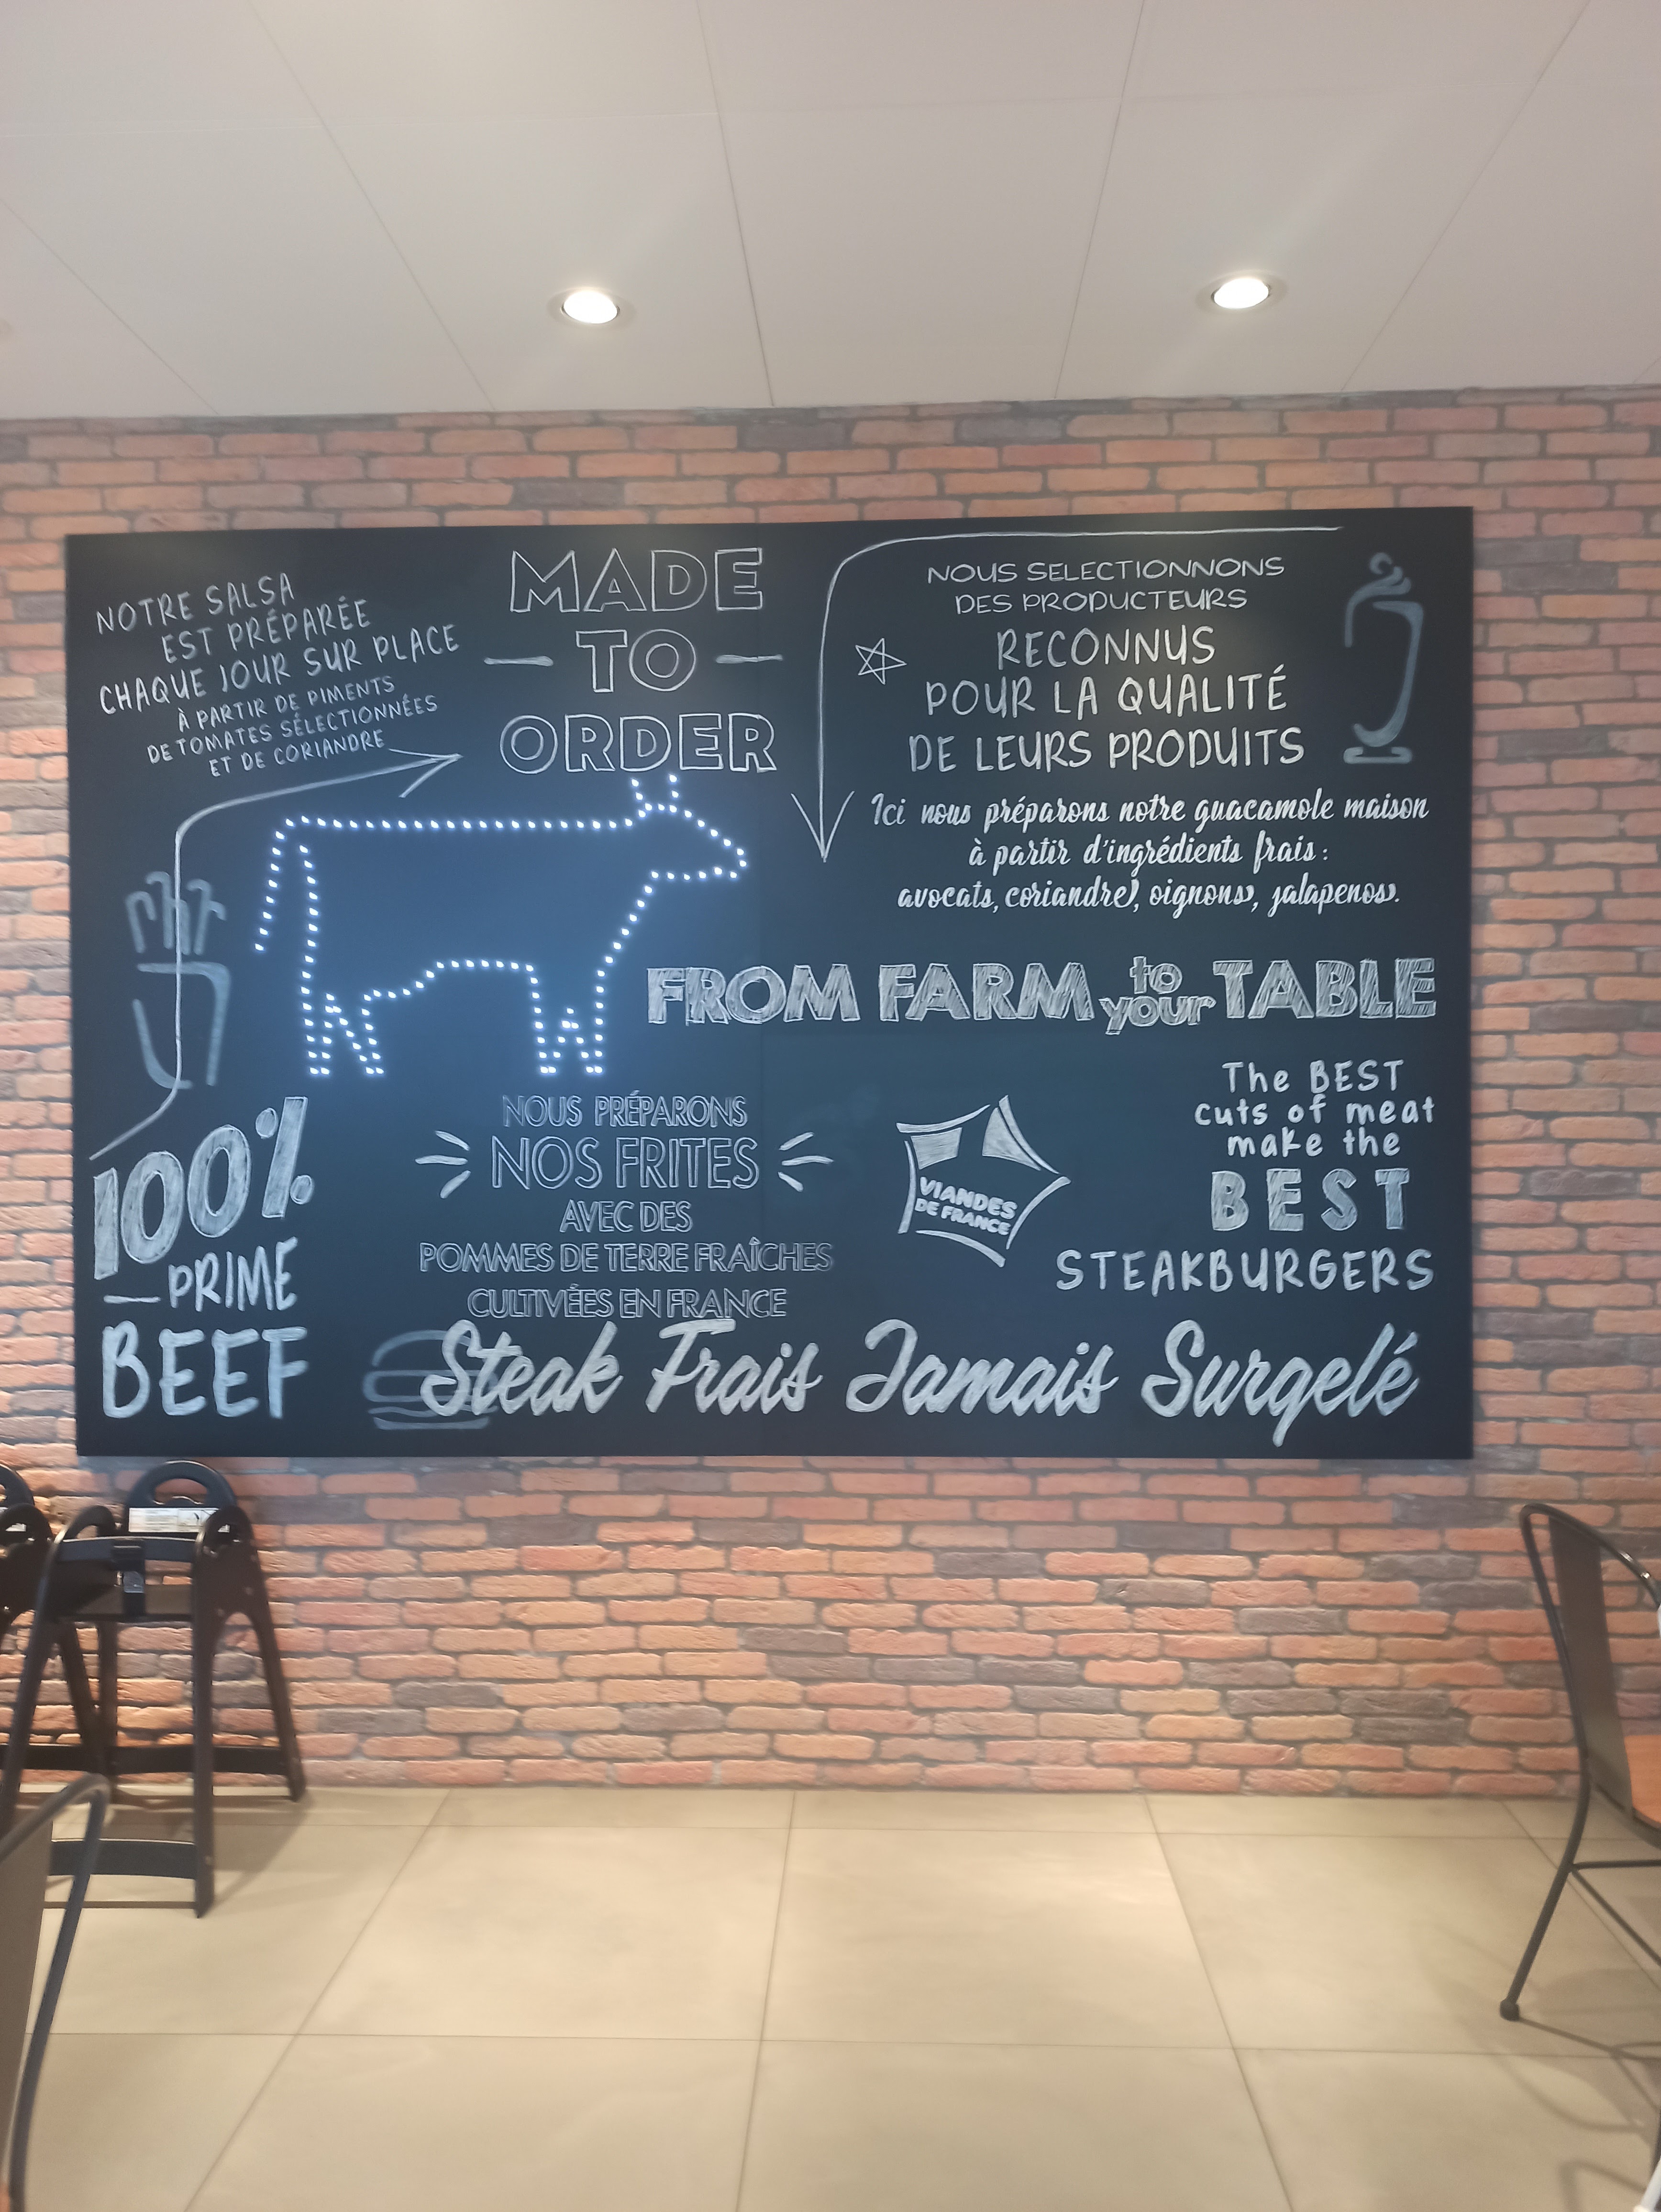 NOTRE SALSA
EST PRÉPARÉE
CHAQUE JOUR SUR PLACE
À PARTIR DE PIMENTS
DE TOMATES SÉLECTIONNÉES
ET DE CORIANDRE
MADE
TO
ORDER
NOUS SELECTIONNONS
DES PRODUCTEURS
RECONNUS
POUR LA QUALITÉ
DE LEURS PRODUITS
Ici nous préparons notre guacamole maison
à partir d'ingrédients frais :
avocats, coriandre, oignons, jalapenos.
FROM FARM to your TABLE
100%
PRIME
BEEF
NOUS PRÉPARONS
NOS FRITES
AVEC DES
POMMES DE TERRE FRAÎCHES
CULTIVÉES EN FRANCE
VIANDES
DE FRANCE
The BEST
cuts of meat
make the
BEST
STEAKBURGERS
Steak Frais Jamais Surgelé